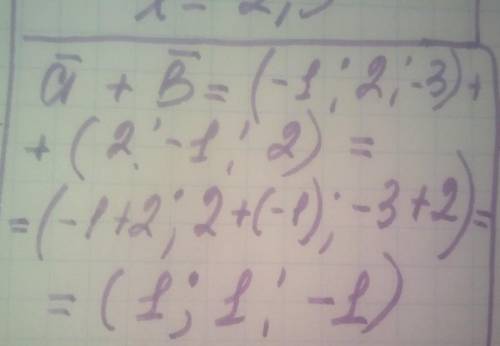 ā + b̄ = (-1; 2; -3) +
+ (2; -1; 2) =
= (-1+2; 2+(-1); -3+2) =
= (1; 1; -1)